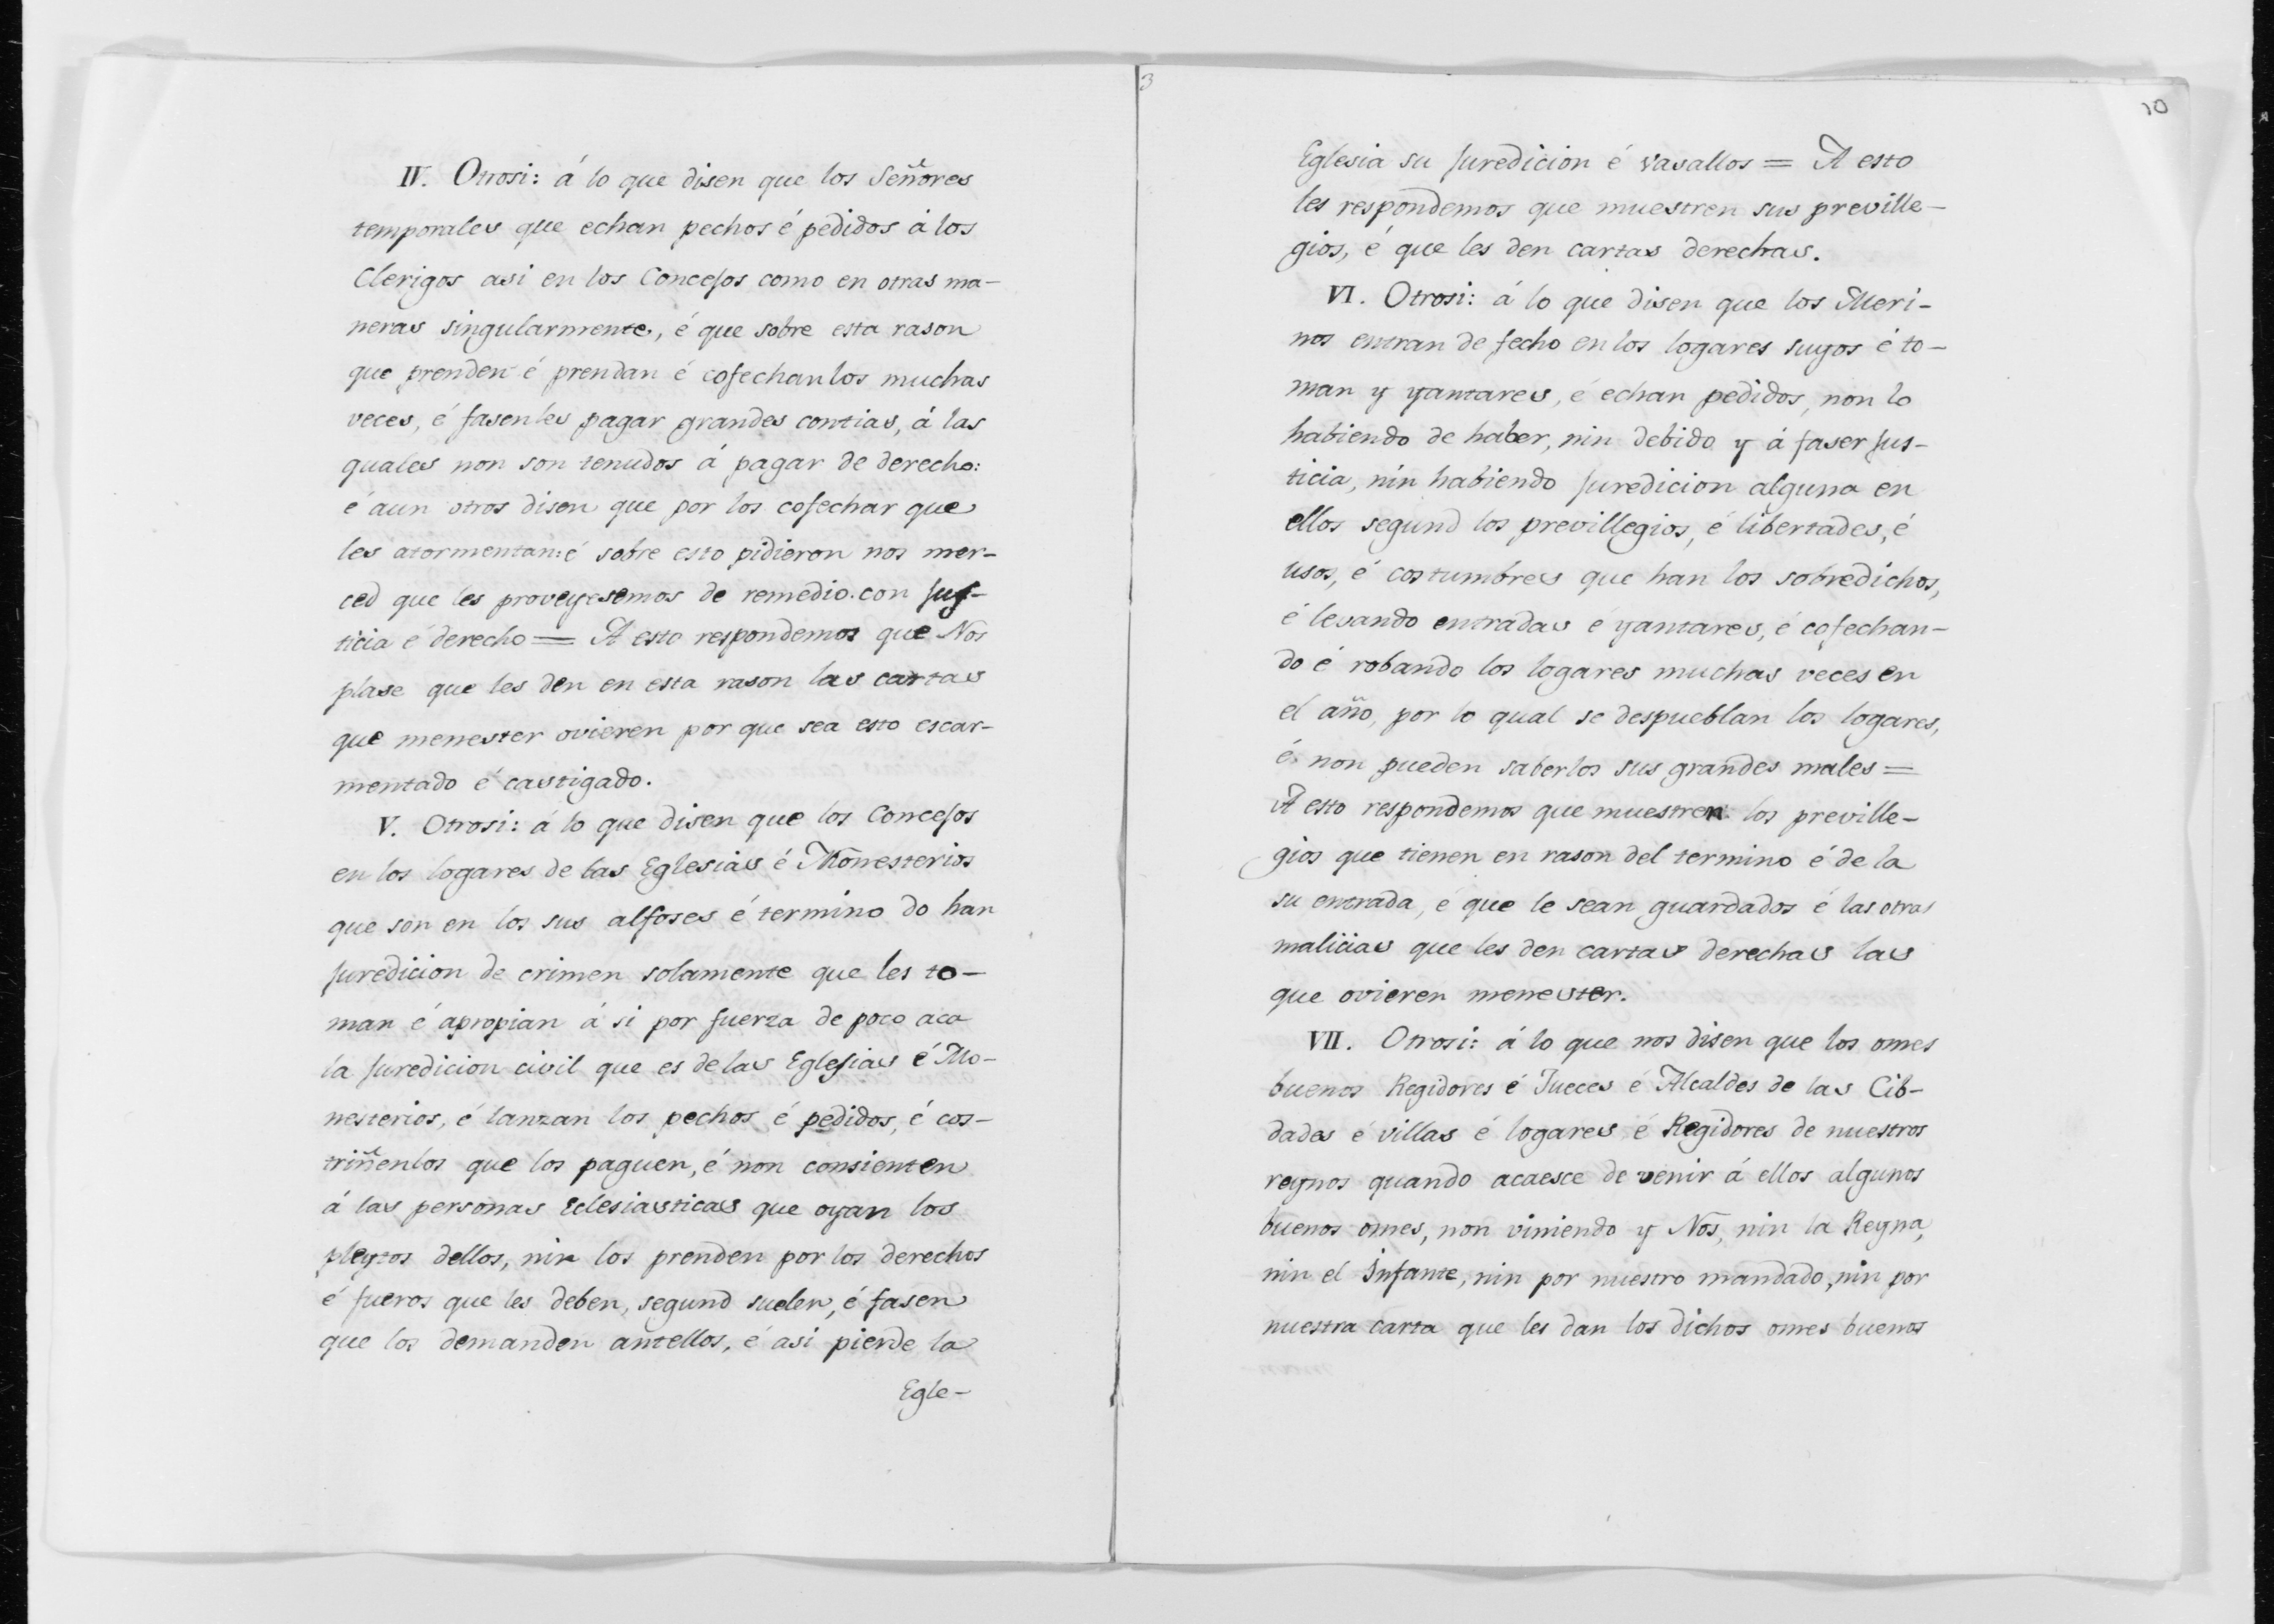 IV. Otrosi: á lo que disen que los Señores
temporales que echan pechos é pedidos á los
Clerigos asi en los Concejos como en otras ma-
neras singularmente, é que sobre esta rason
que prenden é prendan é cofechanlos muchas
veces, é fasenles pagar grandes contias, á las
quales non son tenudos á pagar de derecho:
é aun otros disen que por los cofechar que
les atormentan: é sobre esto pidieron nos mer-
ced que les proveyesemos de remedio con jus-
ticia é derecho = A esto respondemos que Nos
plase que les den en esta rason las cartas
que menester ovieren por que sea esto escar-
mentado é castigado.
V. Otrosi: á lo que disen que los Concejos
en los logares de las Eglesias é Monesterios
que son en los sus alfoses é termino do han
juredicion de crimen solamente que les to-
man é apropian á si por fuerza de poco aca
la juredicion civil que es de las Eglesias é Mo-
nesterios, é lanzan los pechos é pedidos, é cos-
triñenlos que los paguen, é non consienten
á las personas Eclesiasticas que oyan los
pleytos dellos, nin los prenden por los derechos
é fueros que les deben, segund suelen, é fasen
que los demanden antellos, é asi pierde la
Egle-
3
10
Eglesia su juredicion é vasallos = A esto
les respondemos que muestren sus preville-
gios, é que les den cartas derechas.
VI. Otrosi: á lo que disen que los Meri-
nos entran de fecho en los logares suyos é to-
man y yantares, é echan pedidos, non lo
habiendo de haber, nin debido y á faser jus-
ticia, nin habiendo juredicion alguna en
ellos segund los previllegios, é libertades, é
usos, é costumbres que han los sobredichos,
é levando entradas é yantares, é cofechan-
do é robando los logares muchas veces en
el año, por lo qual se despueblan los logares,
é non pueden saberlos sus grandes males =
A esto respondemos que muestren los preville-
gios que tienen en rason del termino é de la
su entrada, é que le sean guardados é las otras
malicias que les den cartas derechas las
que ovieren menester.
VII. Otrosi: á lo que nos disen que los omes
buenos Regidores é Jueces é Alcaldes de las Cib-
dades é villas é logares é Regidores de nuestros
reynos quando acaesce de venir á ellos algunos
buenos omes, non viniendo y Nos, nin la Reyna,
nin el Infante, nin por nuestro mandado, nin por
nuestra carta que les dan los dichos omes buenos